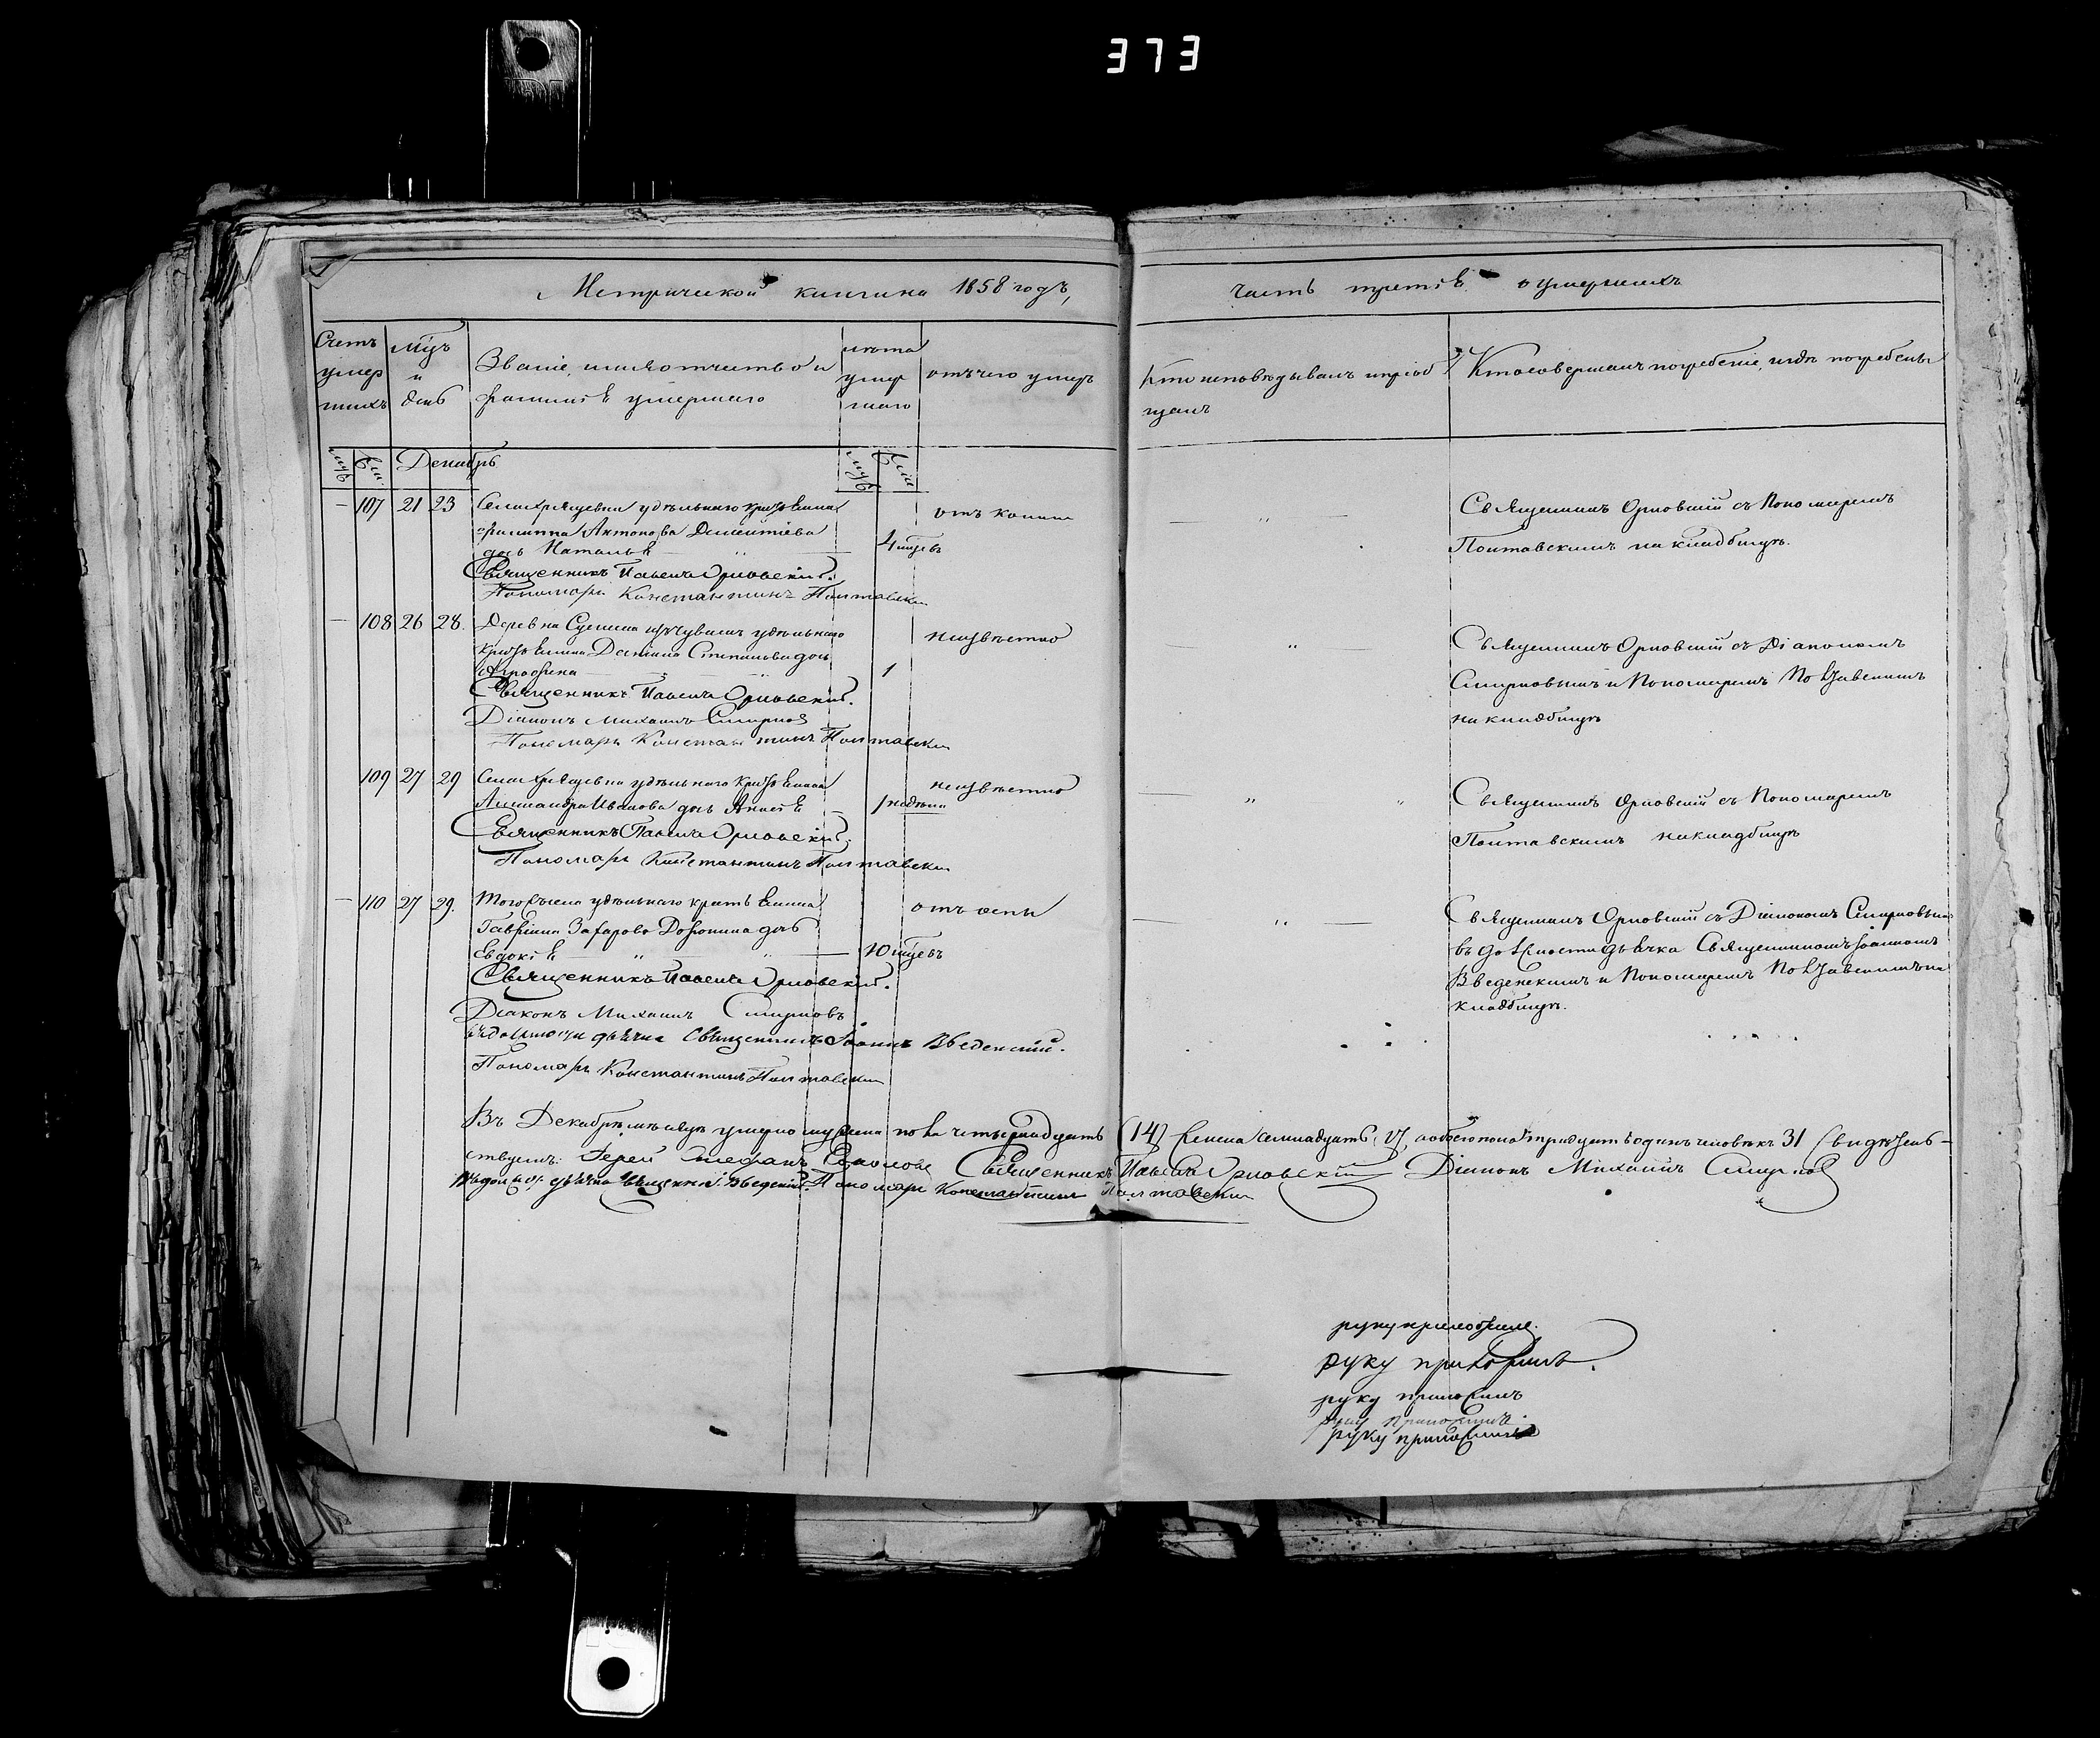 373
Метрической книги на 1858 годъ,
часть третія о умершихъ
Счетъ умер шихъ
Мцъ и день
Званіе, имя отчество и фамилія умершаго
лѣта умер шаго
отъ чего умеръ
Кто исповѣдывалъ и пріоб щалъ
Кто совершалъ погребеніе, и гдѣ погребены
муж жен Декабрь муж жен
— 107 21 23 Села удѣльнаго крестьянина
Филиппа Антонова Дементіева
дочь Наталья 4 мцевъ
Священникъ Павелъ Орловскій.
Пономарь Константинъ Полтавскій
Священникъ Орловскій съ Пономаремъ
Полтавскимъ на кладбищѣ.
— 108 26 28. Деревни удѣльнаго
крестьянина Степанова дочь
Агрофена 1
неизвѣстно
Священникъ Павелъ Орловскій.
Діаконъ Михаилъ Смирновъ
Пономарь Константинъ Полтавскій
Священникъ Орловскій съ Діакономъ
Смирновымъ и Пономаремъ Полтавскимъ
на кладбищѣ
109 27 29 Села удѣльнаго крестьянина
Александра Иванова дочь 1 недѣли
неизвѣстно
Священникъ Павелъ Орловскій.
Пономарь Константинъ Полтавскій
Священникъ Орловскій съ Пономаремъ
Полтавскимъ на кладбищѣ
— 110 27 29. Того же села удѣльнаго крестьянина
Гавріила Захарова дочь
Евдокія 10 мцевъ
отъ оспы
Священникъ Павелъ Орловскій.
Діаконъ Михаилъ Смирновъ
въ должности дьячка Священникъ Іоаннъ Введенскій.
Пономарь Константинъ Полтавскій
Священникъ Орловскій съ Діакономъ Смирновымъ
въ должности дьячка Священникомъ Іоанномъ
Введенскимъ и Пономаремъ Полтавскимъ на
кладбищѣ.
Въ Декабрѣ мѣсяцѣ умерло мужеска пола четырнадцать (14) женска семнадцать 17, а обоего пола тридцать одинъ человѣкъ 31 Свидѣтель-
ствуемъ: Іерей Стефанъ Священникъ Павелъ Орловскій Діаконъ Михаилъ Смирновъ
Въ долж. дьячка Священ. І. Введенскій. Пономарь Константинъ Полтавскій
руку приложилъ.
руку приложилъ.
руку приложилъ
руку приложилъ.
руку приложилъ